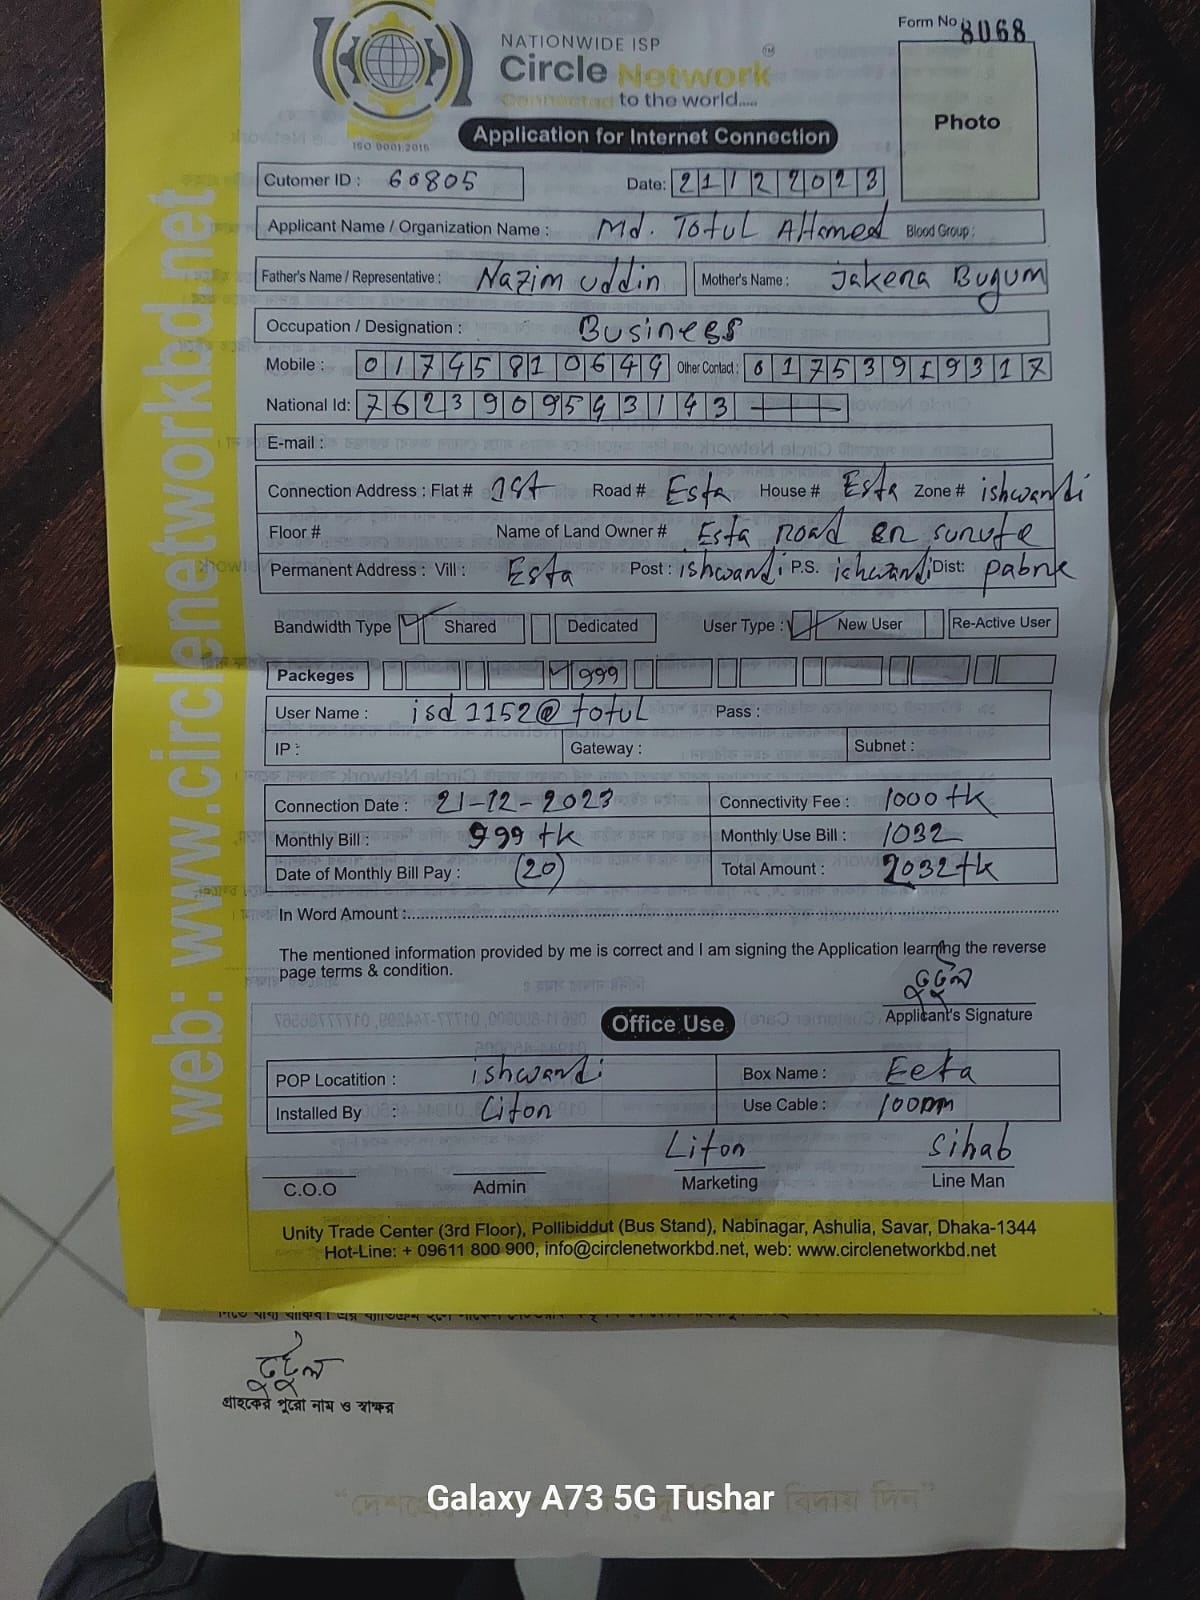 Form No 8068
NATIONWIDE ISP
Circle Network TM
Connected to the world.....
ISO 9001:2015
Application for Internet Connection
Photo
Cutomer ID : 60805 Date: 21122023
Applicant Name / Organization Name : Md. Totul AHamed Blood Group :
Father's Name / Representative : Nazim uddin Mother's Name : Jakena Bugum
Occupation / Designation : Business
Mobile : 01745810644 Other Contact : 01753919317
National Id: 7623909543143
E-mail :
Connection Address : Flat # 1st Road # Esta House # Esta Zone # ishwandi
Floor # Name of Land Owner # Esta road
Permanent Address : Vill : Esta Post : ishwandi P.S. ishwandi Dist: pabna
Bandwidth Type Shared Dedicated User Type : New User Re-Active User
Packeges 999
User Name : isd1152@totul Pass :
IP : Gateway : Subnet :
Connection Date : 21-12-2023 Connectivity Fee : 1000 tk
Monthly Bill : 999 tk Monthly Use Bill : 1032
Date of Monthly Bill Pay : (20) Total Amount : 2032 tk
In Word Amount :
The mentioned information provided by me is correct and I am signing the Application learning the reverse
page terms & condition.
টুটুল
Applicant's Signature
Office Use
POP Locatition : ishwandi Box Name : Eeta
Installed By : Liton Use Cable : 100mm
Liton Sihab
C.O.O Admin Marketing Line Man
Unity Trade Center (3rd Floor), Pollibiddut (Bus Stand), Nabinagar, Ashulia, Savar, Dhaka-1344
Hot-Line: + 09611 800 900, info@circlenetworkbd.net, web: www.circlenetworkbd.net
web: www.circlenetworkbd.net
টুটুল
গ্রাহকের পুরো নাম ও স্বাক্ষর
Galaxy A73 5G Tushar